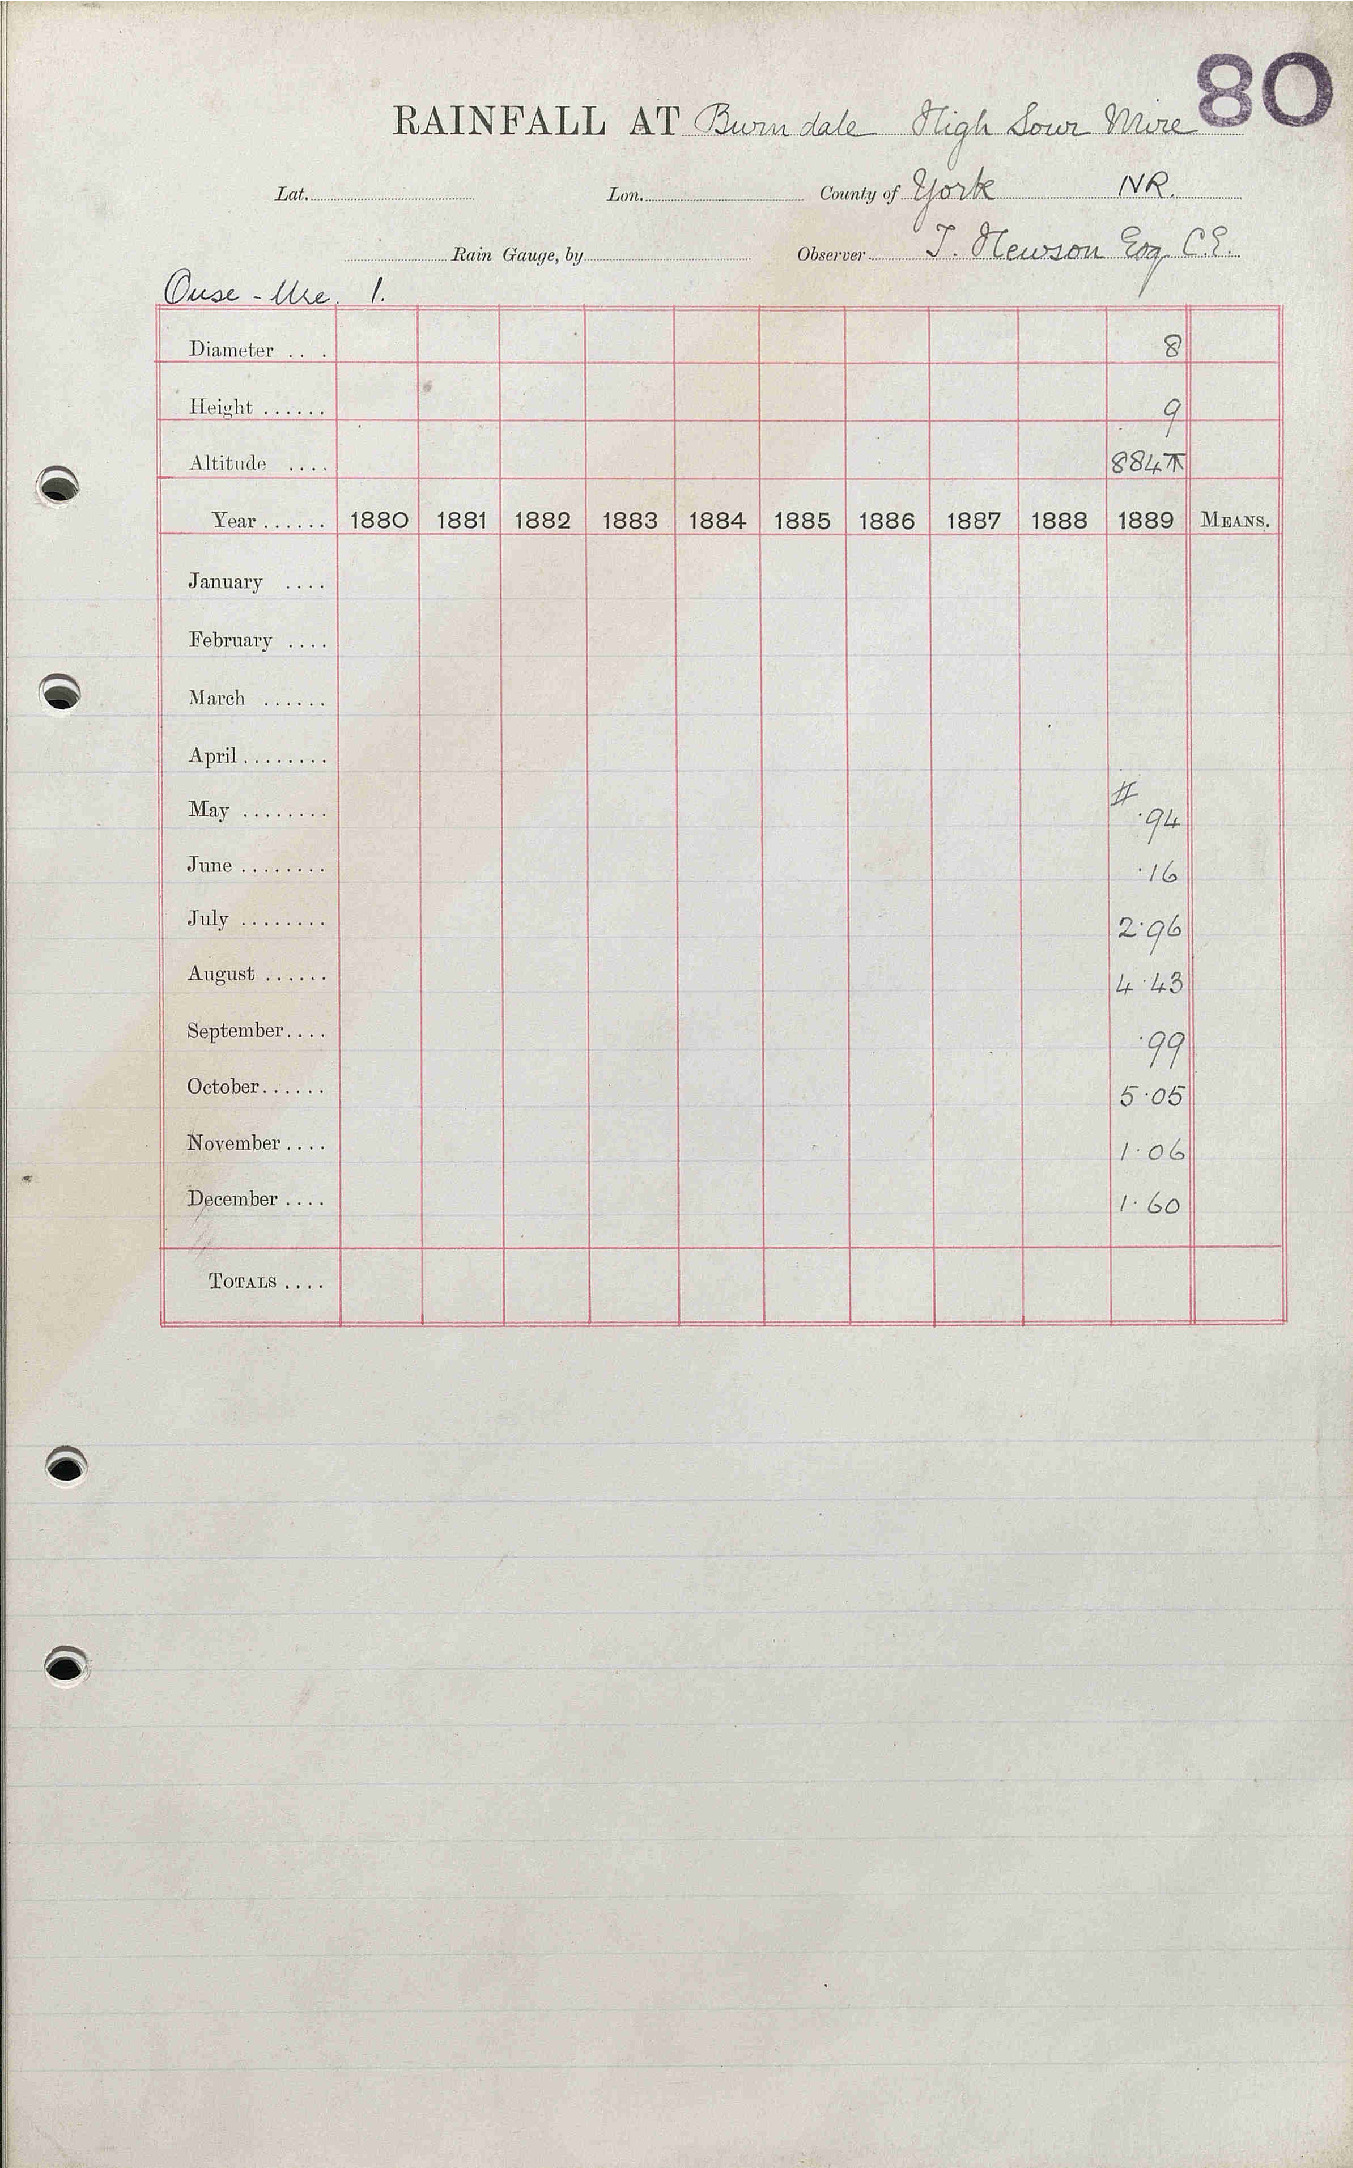 80
RAINFALL AT Burn dale High Sour Mire
Lat. Lon. County of York NR.
Rain Gauge, by Observer T. Hewson Esq C.E.
Ouse - Ure. 1.
Diameter . . . 8
Height ...... 9
Altitude .... 884
Year ...... 1880 1881 1882 1883 1884 1885 1886 1887 1888 1889 MEANS.
January ....
February ....
March ......
April ........
May ........ # .94
June ........ .16
July ........ 2.96
August ...... 4.43
September.... .99
October...... 5.05
November .... 1.06
December .... 1.60
TOTALS ....